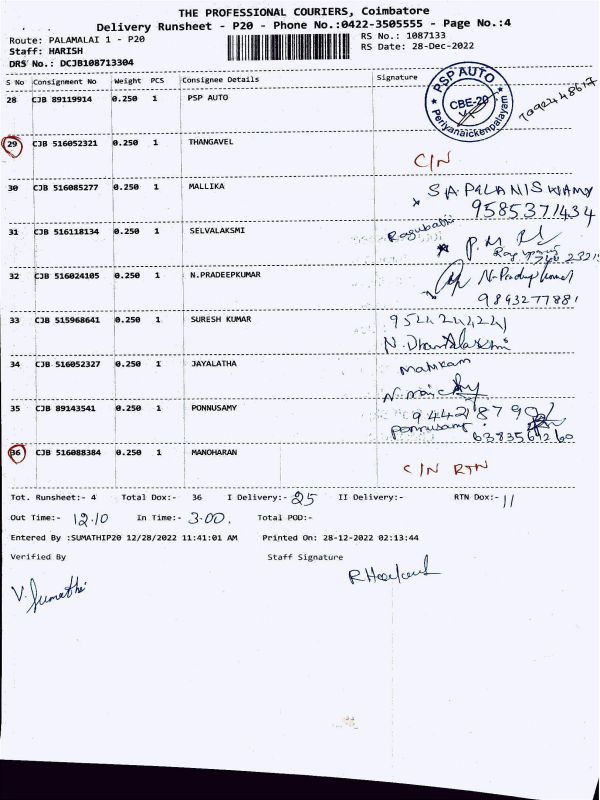 THE PROFESSIONAL COURIERS, Coimbatore
Delivery Runsheet - P20 - Phone No.:0422-3505555 - Page No.:4
Route: PALAMALAI 1 - P20
RS No.: 1087133
Staff: HARISH
RS Date: 28-Dec-2022
DRS No.: DCJB108713304
S No Consignment No Weight PCS Consignee Details Signature
PSP AUTO
CBE-20
Periyanaickenpalayam
28 CJB 89119914 0.250 1 PSP AUTO
29 CJB 516052321 0.250 1 THANGAVEL C/N
30 CJB 516085277 0.250 1 MALLIKA S.A. PALANISWAMY
9585371434
31 CJB 516118134 0.250 1 SELVALAKSMI Ragubathi
32 CJB 516024105 0.250 1 N.PRADEEPKUMAR
9843277881
33 CJB 515968641 0.250 1 SURESH KUMAR
34 CJB 516052327 0.250 1 JAYALATHA Manikam
35 CJB 89143541 0.250 1 PONNUSAMY
Ponnusamy
36 CJB 516088384 0.250 1 MANOHARAN C/N RTN
Tot. Runsheet:- 4 Total Dox:- 36 I Delivery:- 25 II Delivery:- RTN Dox:- 11
Out Time:- 12.10 In Time:- 3.00. Total POD:-
Entered By :SUMATHIP20 12/28/2022 11:41:01 AM Printed On: 28-12-2022 02:13:44
Verified By Staff Signature
V. Sumathi